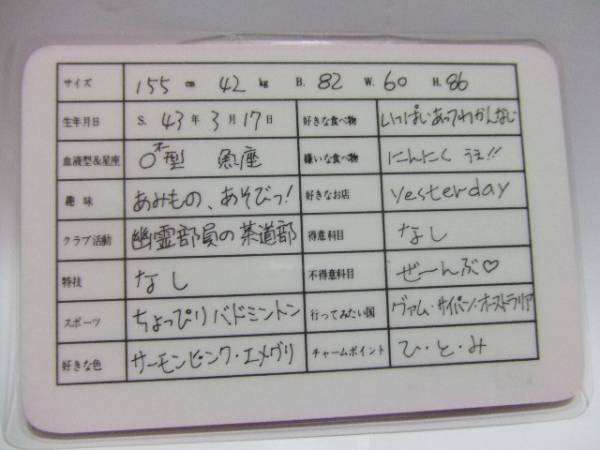 サイズ 155 cm 42 kg B. 82 W. 60 H. 86
生年月日 S. 43 年 3 月 17 日 好きな食べ物 いっぱいあってわかんない
血液型&星座 O型 魚座 嫌いな食べ物 にんにく うェ!!
趣味 あみもの、あそびっ! 好きなお店 yesterday
クラブ活動 幽霊部員の茶道部 得意科目 なし
特技 なし 不得意科目 ぜ〜んぶ♡
スポーツ ちょっぴりバドミントン 行ってみたい国 グァム・サイパン・オーストラリア
好きな色 サーモンピンク・エメグリ チャームポイント ひ・と・み